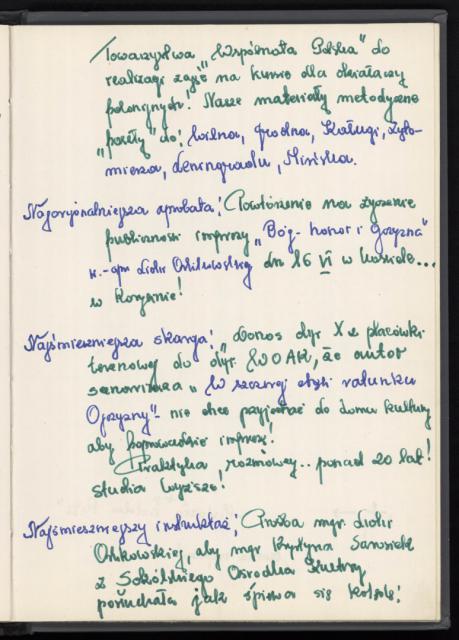 Towarzystwa „Wspólnota Polska" do
realizacji zajęć na kursie dla działaczy
polonijnych! Nasze materiały metodyczne
„poszły" do: Wilna, Grodna, Kaługi, Żyto-
mierza, Leningradu, Mińska.
Najoryginalniejsza aprobata: Powtórzenie na życzenie
publiczności imprezy „Bóg - honor i Ojczyzna"
Lidii Orlikowskiej dn 16 VI w kościele...
w Korycinie!
Najśmieszniejsza skarga: Donos dyr. X z placówki
terenowej do dyr. WOAK, że autor
scenariusza „W szarej
Ojczyzny" - nie chce przyjechać do domu kultury
aby poprowadzić imprezę!
Praktyka, rozmowy.. ponad 20 lat!
studia wyższe!
Najśmieszniejszy instruktaż: Prośba mgr Lidii
Orlikowskiej, aby mgr Krystyna
z Sokólskiego Ośrodka Kultury
posłuchała jak śpiewa się kolędę!